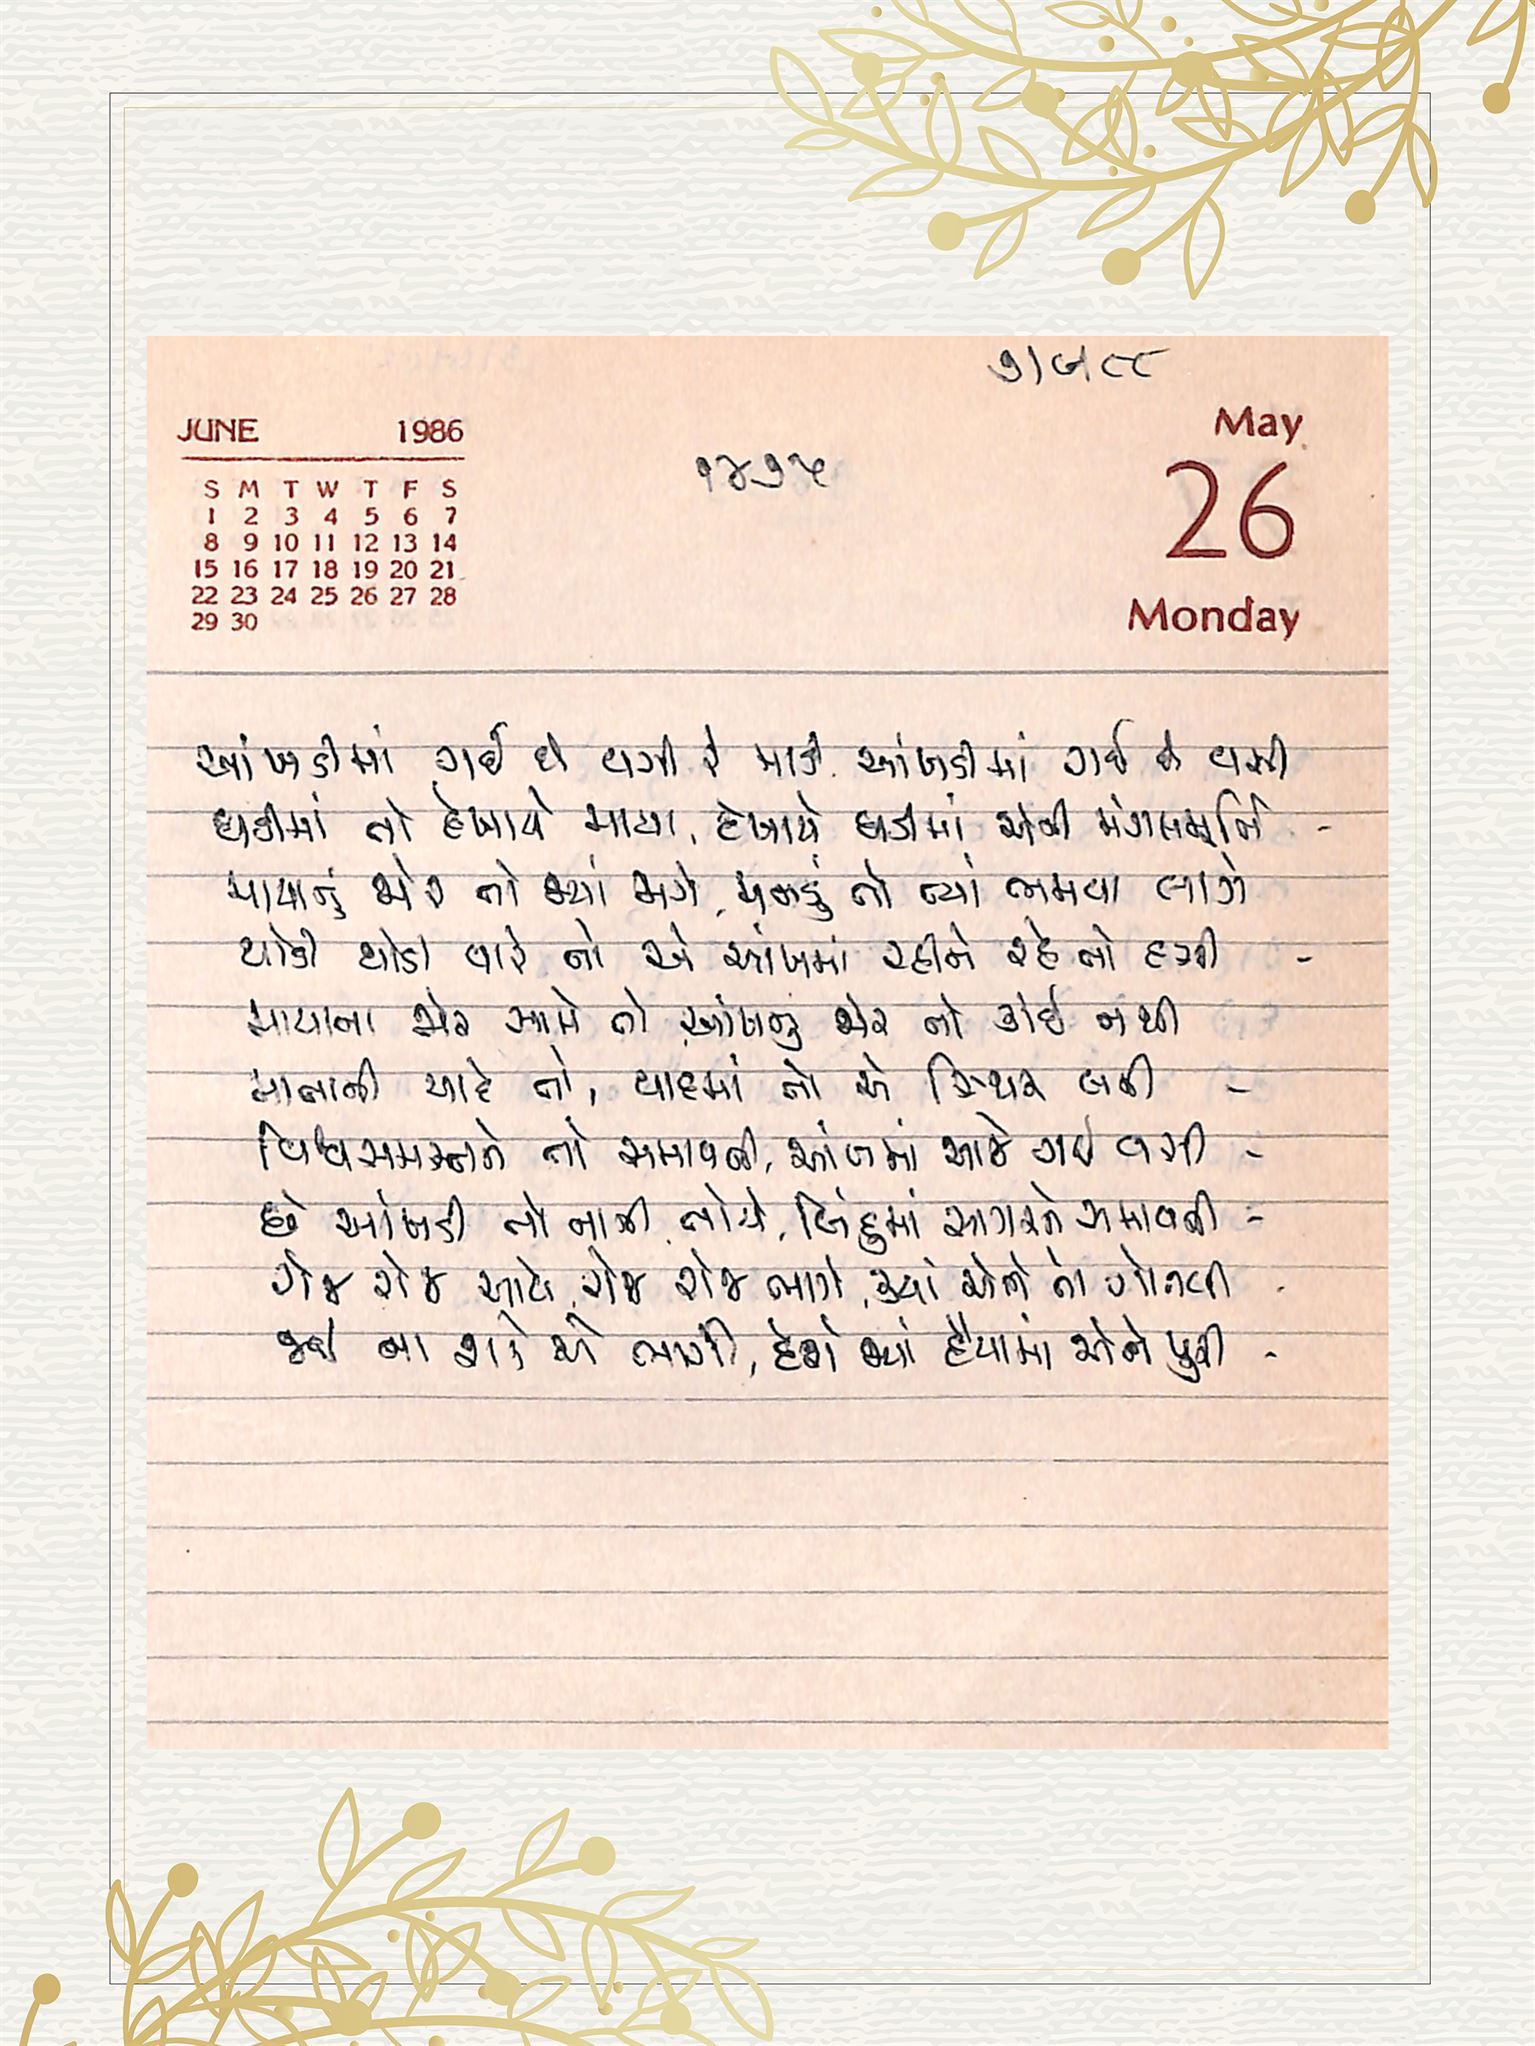 ૭/૯/૮૮
JUNE 1986
S M T W T F S
1 2 3 4 5 6 7
8 9 10 11 12 13 14
15 16 17 18 19 20 21
22 23 24 25 26 27 28
29 30
૧૪૭૫
May
26
Monday
આંખડીમાં ગઈ છે વસી રે મારી આંખડીમાં ગઈ છે વસી
ઘડીમાં તો દેખાયે માયા, દેખાયે ઘડીમાં એની મંગલમૂર્તિ -
માયાનું જોર તો જ્યાં જાગે, મનડું તો ત્યાં ભમવા લાગે
થોડી થોડી વારે તો એ આંખમાં રહીને રહે તો હસી -
માયાના જોર સામે તો આંખનું જોર તો કોઈ નથી
માતાની યાદે તો, યાદમાં તો એ સ્થિર બની -
વિશ્વસમસ્તને તો સમાવતી, આંખમાં આજે ગઈ વસી -
છે આંખડી તો નાની તોયે, બિંદુમાં સાગરને સમાવતી -
રોજ રોજ આવે, રોજ રોજ ભાગે, ક્યાં એને તો ગોતવી -
જઈ ના શકે એ ભાગી, દેશે જ્યાં હૈયામાં એને પુરી -